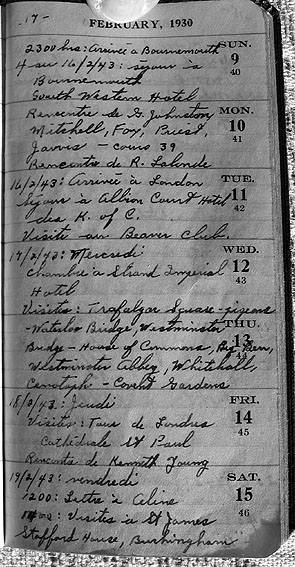 -17-
FEBRUARY, 1930
2300 hrs: Arrivée à Bournemouth SUN.
9
40
4 au 16/2/43: séjour à
Bournemouth
South Western Hotel
Rencontre de G. Johnston MON.
Mitchell, Fox, Priest, 10
41
Jarvis - cours 39
Rencontre de R. Lalonde
16/2/43: Arrivée à London TUE.
Séjour à Allion Court Hotel 11
des K. of C. 42
Visite au Beaver Club.
17/2/43: Mercredi WED.
Chambre à Strand Imperial 12
Hotel 43
Visites: Trafalgar Square - pigeons
- Waterloo Bridge, Westminster THU.
Bridge - House of Commons, Big Ben, 13
44
Westminster Abbey, Whitehall,
Cenotaph - Covent Gardens
18/2/43: Jeudi FRI.
Visites: Tour de Londres 14
Cathédrale St Paul 45
Rencontre de Kenneth Young
19/2/43: vendredi SAT.
1200: Lettre à Aline 15
Visites à St James 46
Stafford House, Buckingham